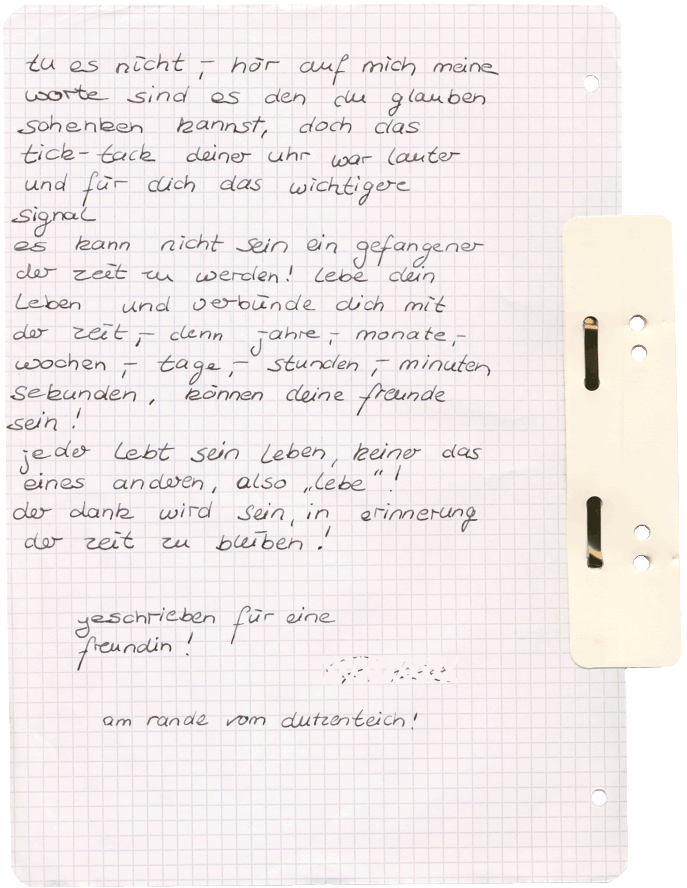 tu es nicht,- hör auf mich meine
worte sind es den du glauben
schenken kannst, doch das
tick-tack deiner uhr war lauter
und für dich das wichtigere
signal
es kann nicht sein ein gefangener
der zeit zu werden! lebe dein
leben und verbünde dich mit
der zeit,- denn jahre,- monate,-
wochen,- tage,- stunden,- minuten
sekunden, können deine freunde
sein!
jeder lebt sein leben, keiner das
eines anderen, also „lebe"!
der dank wird sein, in erinnerung
der zeit zu bleiben!
geschrieben für eine
freundin!
am rande vom dutzenteich!